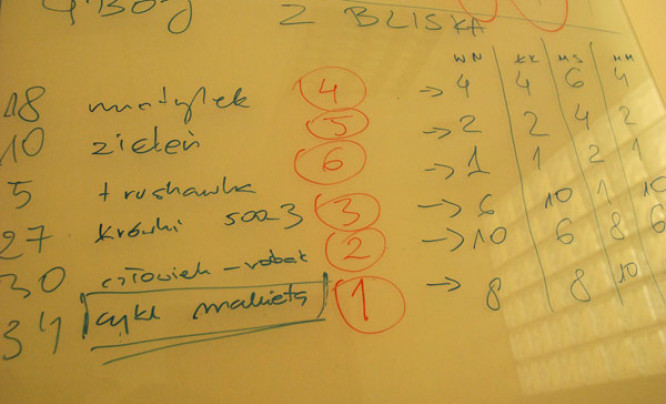 Z BLISKA
WN KK MS MM
18 motylek 4 → 4 4 6 4
10 zieleń 5 → 2 2 4 2
5 truskawka 6 → 1 1 2 1
27 krówki 5023 3 → 6 10 1 10
30 człowiek-robak 2 → 10 6 8 6
34 cykl makieta 1 → 8 8 10